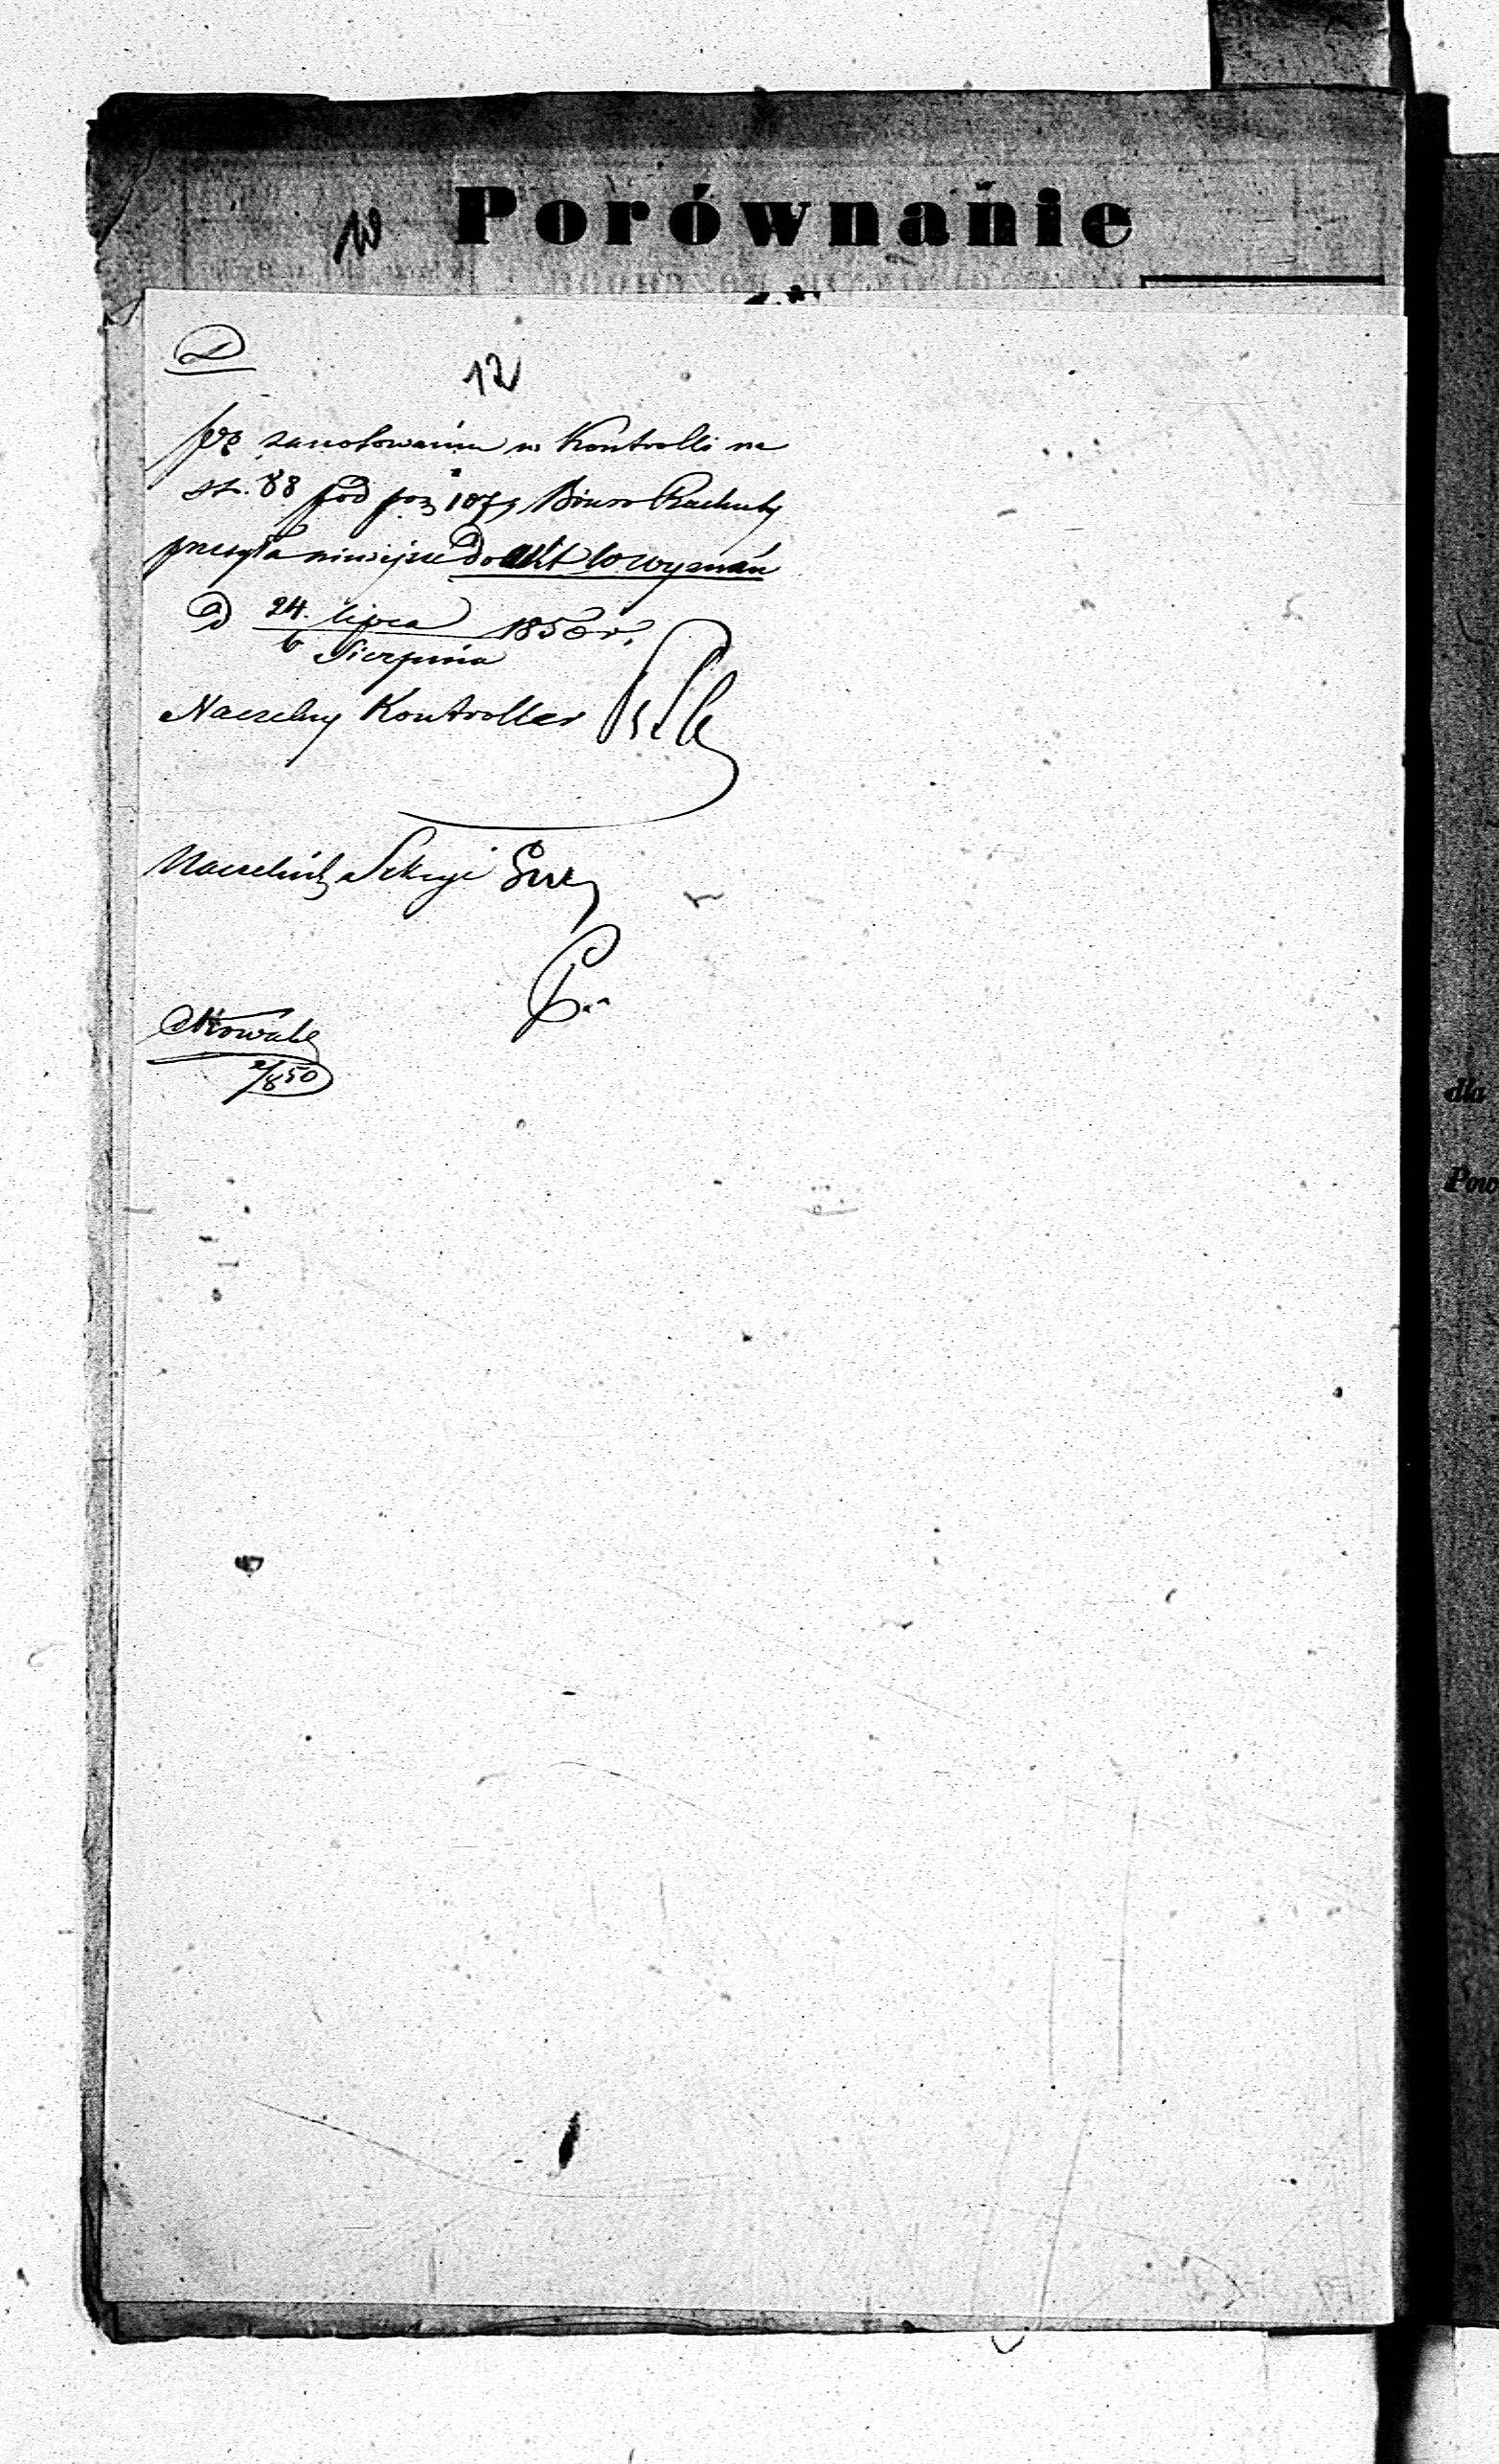 Porównanie
12
po zanotowaniu w Kontrolli na
st. 88 pod poz 1079 Biuro Rachuby
przesyła niniejsze do akt
D 24. lipca 1850 r.
6 Sierpnia
Naczelny Kontroller
Naczelnik Sekcyi
Nowak
/850
dla
Pow